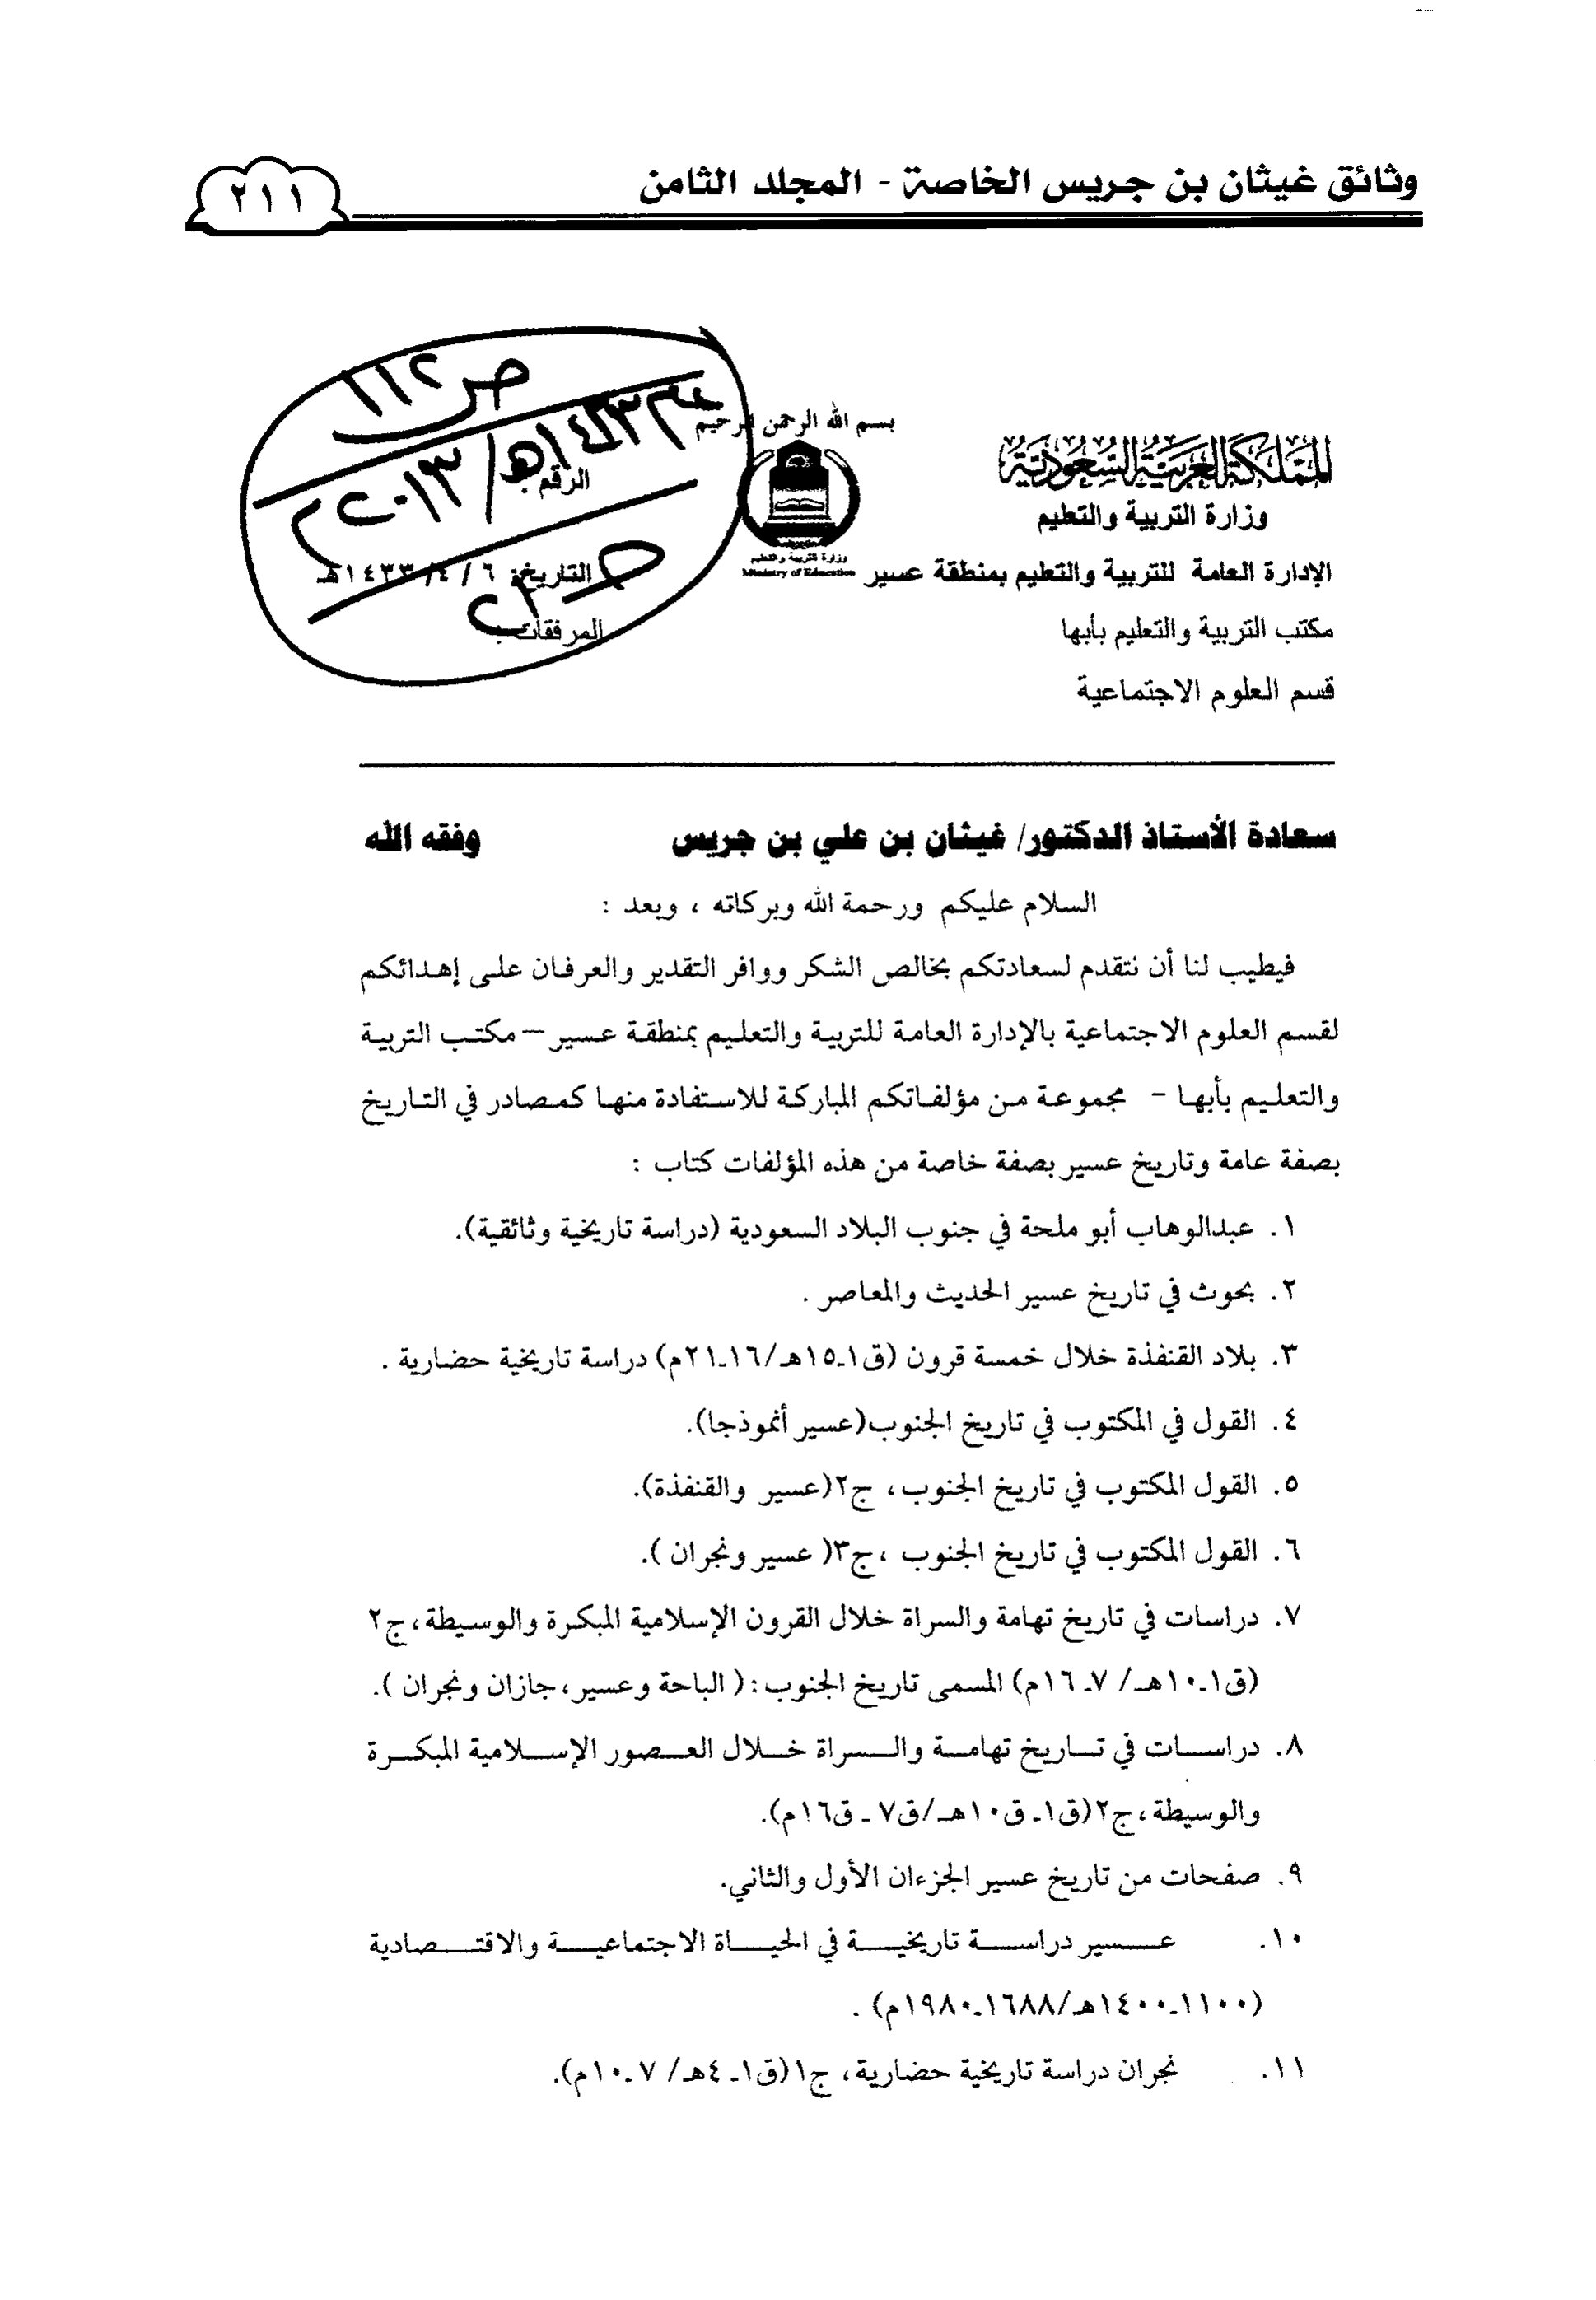 وثائق غيثان بن جريس الخاصة - المجلد الثامن
٢١١
بسم الله الرحمن الرحيم
المملكة العربية السعودية
وزارة التربية والتعليم
الإدارة العامة للتربية والتعليم بمنطقة عسير
مكتب التربية والتعليم بأبها
قسم العلوم الاجتماعية
وزارة التربية والتعليم
Ministry of Education
الرقم:
التاريخ: ٦ / ٤ / ١٤٣٣هـ
المرفقات:
ص ١١٢
١٤٣٣هـ/
٢٠١٣م
سعادة الأستاذ الدكتور/ غيثان بن علي بن جريس وفقه الله
السلام عليكم ورحمة الله وبركاته ، وبعد :
فيطيب لنا أن نتقدم لسعادتكم بخالص الشكر ووافر التقدير والعرفان على إهدائكم
لقسم العلوم الاجتماعية بالإدارة العامة للتربية والتعليم بمنطقة عسير – مكتب التربية
والتعليم بأبها - مجموعة من مؤلفاتكم المباركة للاستفادة منها كمصادر في التاريخ
بصفة عامة وتاريخ عسير بصفة خاصة من هذه المؤلفات كتاب :
١. عبدالوهاب أبو ملحة في جنوب البلاد السعودية (دراسة تاريخية وثائقية).
٢. بحوث في تاريخ عسير الحديث والمعاصر .
٣. بلاد القنفذة خلال خمسة قرون (ق١-١٥هـ/١٦-٢١م) دراسة تاريخية حضارية .
٤. القول في المكتوب في تاريخ الجنوب(عسير أنموذجا).
٥. القول المكتوب في تاريخ الجنوب، ج٢(عسير والقنفذة).
٦. القول المكتوب في تاريخ الجنوب ،ج٣( عسير ونجران ).
٧. دراسات في تاريخ تهامة والسراة خلال القرون الإسلامية المبكرة والوسيطة، ج٢
(ق١-١٠هـ/ ٧-١٦م) المسمى تاريخ الجنوب : ( الباحة وعسير، جازان ونجران ).
٨. دراسات في تاريخ تهامة والسراة خلال العصور الإسلامية المبكرة
والوسيطة، ج٢(ق١- ق١٠هـ/ق٧ - ق١٦م).
٩. صفحات من تاريخ عسير الجزءان الأول والثاني.
١٠. عسير دراسة تاريخية في الحياة الاجتماعية والاقتصادية
(١١٠٠-١٤٠٠هـ/١٦٨٨-١٩٨٠م) .
١١. نجران دراسة تاريخية حضارية، ج١(ق١- ٤هـ/ ٧-١٠م).